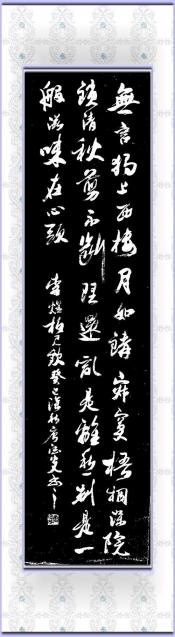 無言獨上西樓月如鈎寂寞梧桐深院
鎖清秋剪不斷理還亂是離愁別是一
般滋味在心頭
李煜相見歡癸